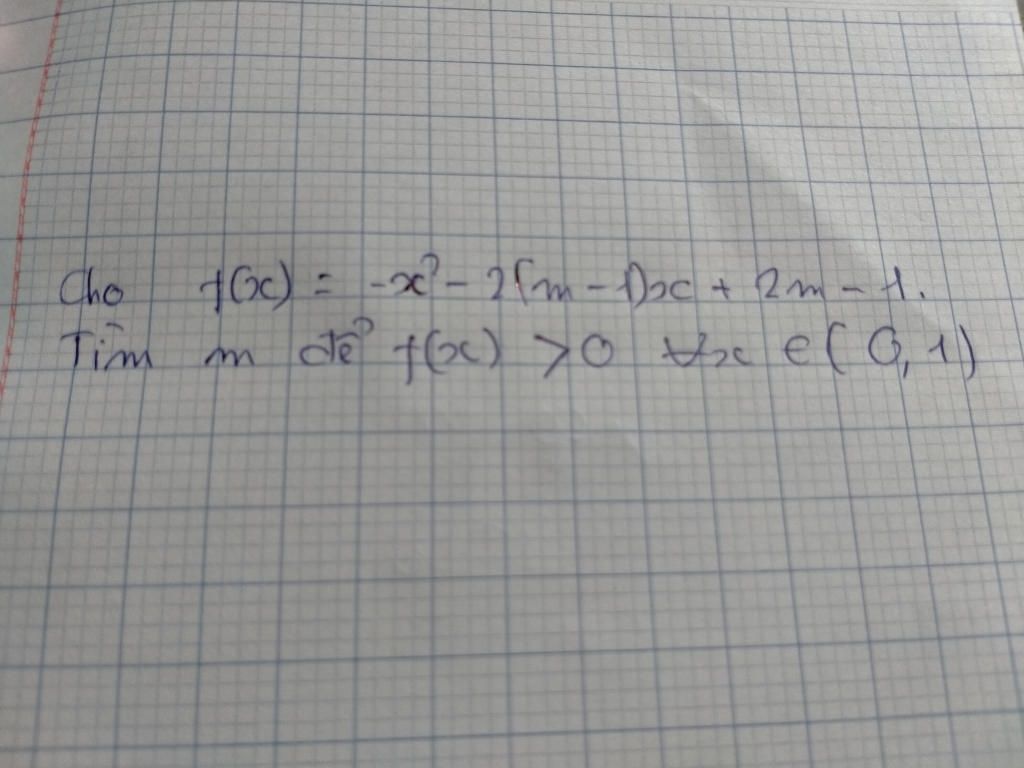 Cho f(x) = -x² - 2(m - 1)x + 2m - 1.
Tìm m để f(x) > 0 ∀x ∈ (0, 1)